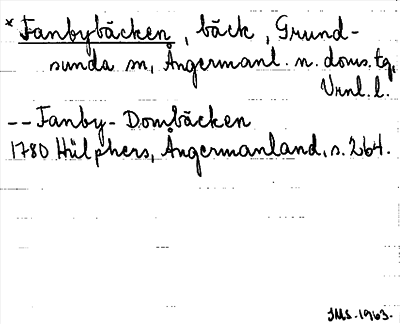 * Fanbybäcken, bäck, Grund-
sunda sn, Ångermanl. n. doms. tg,
Vrnl. l.
-- Fanby-Dombäcken
1780 Hülphers, Ångermanland, s. 264.
JMS. 1963.